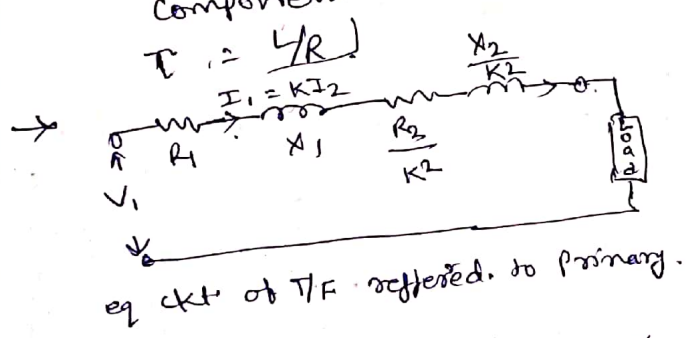 Compone
τ = L/R
I1 = KI2
X2/K2
R1
X1
R2/K2
Load
V1
eq ckt of T/F reffered. to Primary.